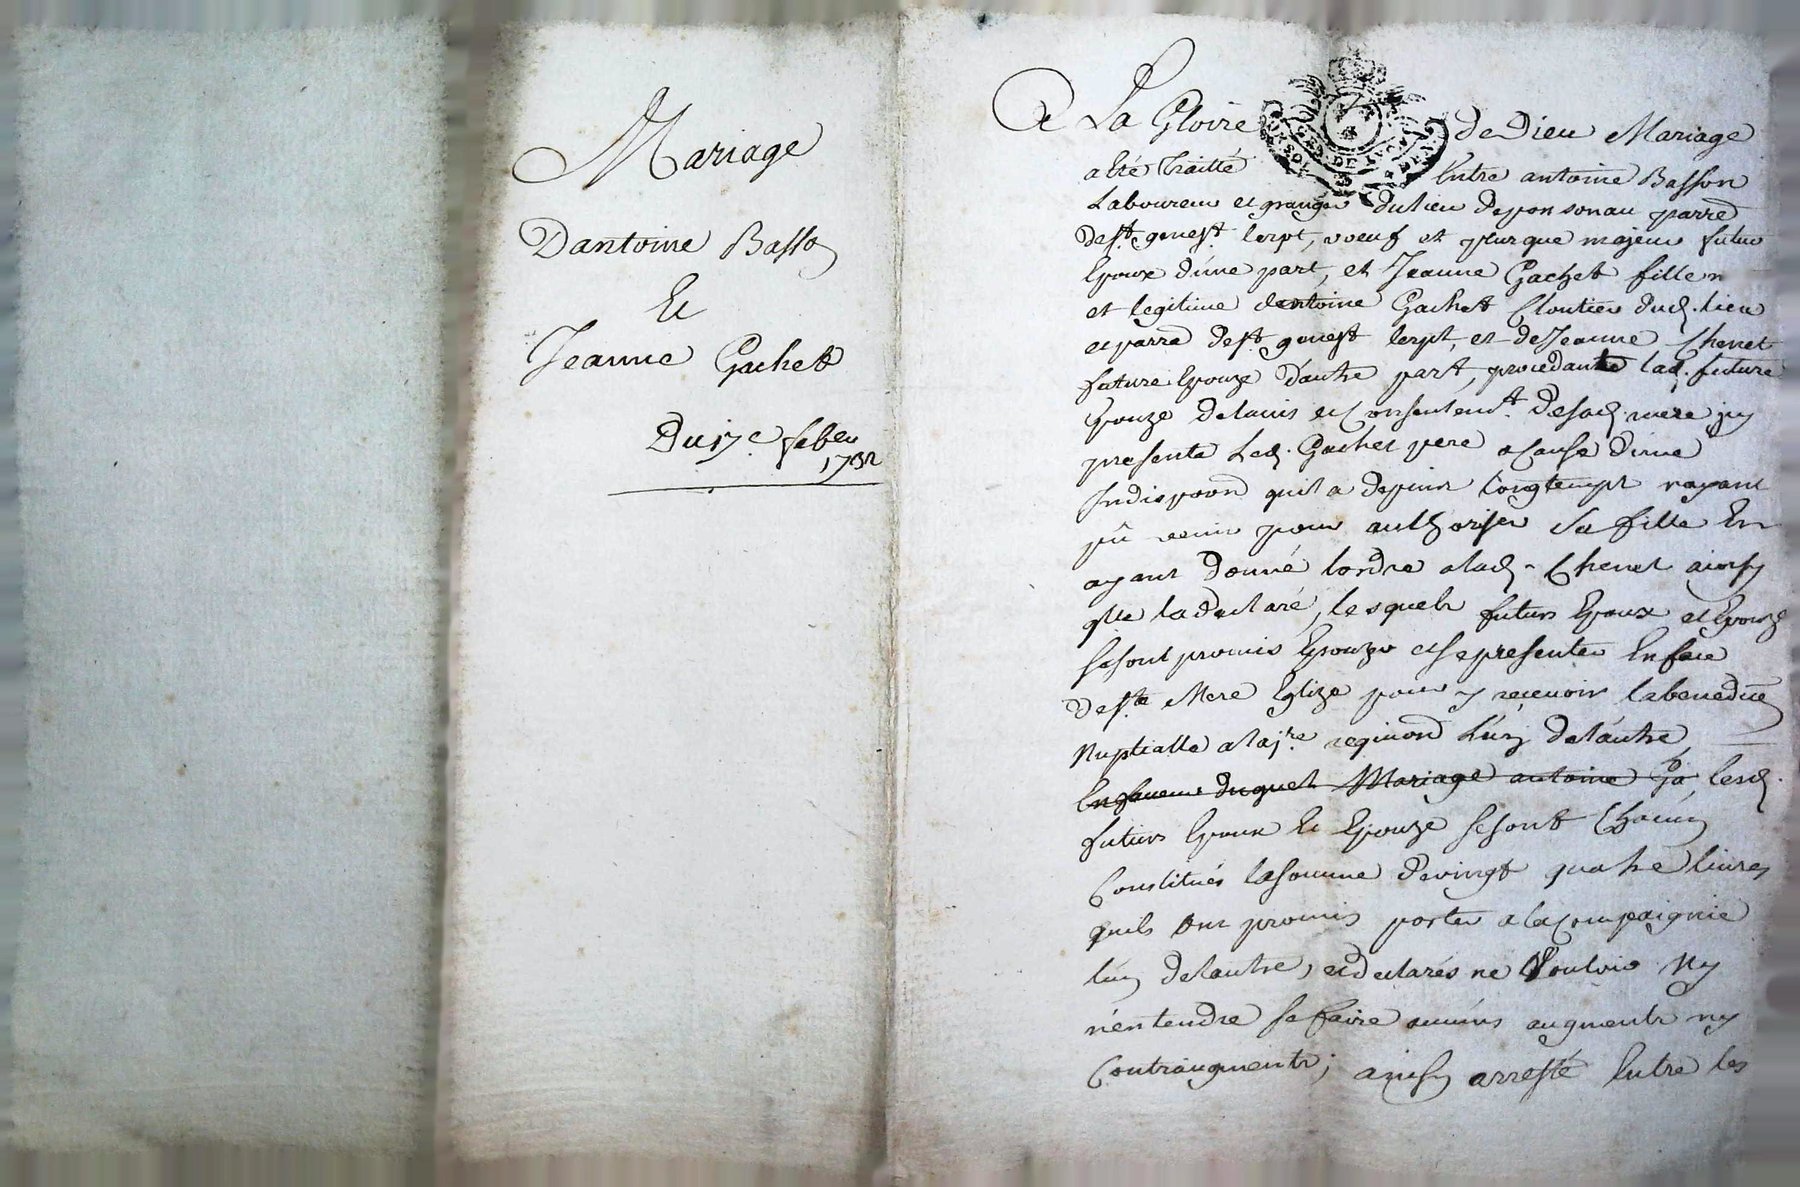 Mariage
Dantoine Basson
Et
Jeanne Gachet
Du 17e. feb
A La Gloire de Dieu Mariage
a Eté Traitté Entre antoine Basson
Laboureur et granger du lieu de ponsonau parre
de st. genest lerpt, voeuf et plus que majeur futur
Epoux d'une part, et Jeanne Gachet fille n
et legitime dantoine Gachet Cloutier dud. lieu
et parre de st. genest lerpt, et de Jeanne Chenet
future Epouze D'autre part, procedante lad. future
Epouze de lavis et Consentemt. de sad. mere jcy
presente Led. Gachet pere a Cause d'une
Indispoon quil a depuis Longtempt nayant
pû venir pour authoriser Sa fille En
ayant Donné lordre a lad. Chenet ainsy
qlle la declaré, lesquels futurs Epoux et Epouze
se sont promis Epouzer et se presenter En face
de ste Mere Eglize pour y recevoir la benedice
Nuptialle a la jre requion L'un de lautre,
En faveur duquel Mariage antoine Ga Lesd.
futurs Epoux Et Epouze se sont Chacun
Constitués la somme de vingt quatre livres
quils ont promis porter a la Compaignie
lun de lautre, et declarés ne Vouloir Ny
n'entendre se faire aucuns augments ny
Contraugments; ainsy arresté Entre les